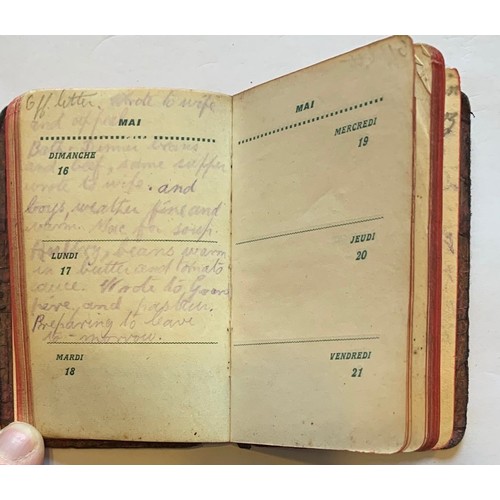 Off. letter. Wrote to wife
and
MAI
DIMANCHE
16
Dinner beans
and beef, same supper
wrote to wife. and
boys, weather fine and
warm. Mac for soup.
LUNDI
17
beans warm
in butter and tomato
sauce. Wrote to
and
Preparing to leave
to-morrow.
MARDI
18
MAI
MERCREDI
19
JEUDI
20
VENDREDI
21